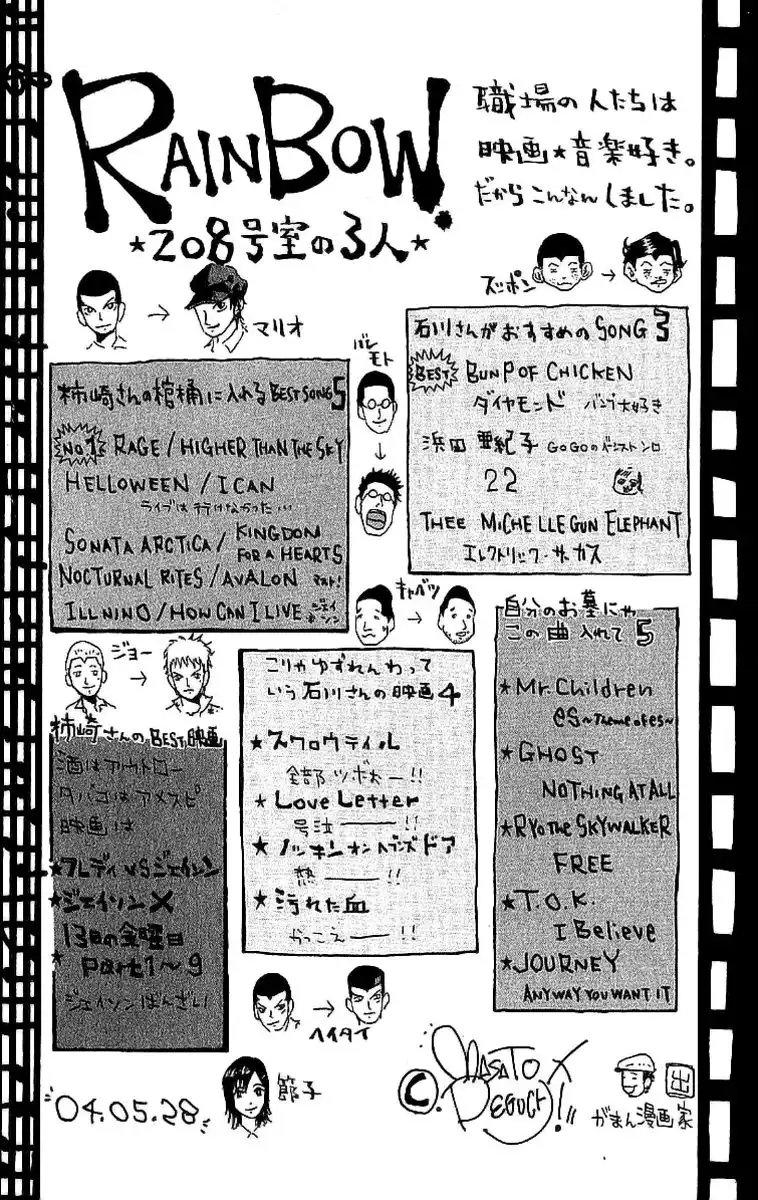 RAINBOW
★208号室の3人★
職場の人たちは
映画★音楽好き。
だからこんなんしました。
マリオ
スッポン
バレモト
柿崎さんの棺桶に入れるBEST SONG 5
No.1 RAGE/HIGHER THAN THE SKY
HELLOWEEN/I CAN
ライブは行けなかった…
SONATA ARCTICA/KINGDON FOR A HEARTS
NOCTURNAL RITES/AVALON
ILL NINO/HOW CAN I LIVE
石川さんがおすすめのSONG 3
BEST BUNP OF CHICKEN
ダイヤモンド バンプ大好き
浜田亜紀子
22
THEE MICHELLE GUN ELEPHANT
エレクトリック・サーカス
キャベツ
ジョー
自分のお墓にゃ
この曲入れて5
★Mr.Children
es~Theme of es~
★GHOST
NOTHING AT ALL
★RYO THE SKYWALKER
FREE
★T.O.K.
I Believe
★JOURNEY
ANYWAY YOU WANT IT
こりゃゆずれんわって
いう石川さんの映画4
★スワロウテイル
全部ツボだー!!
★Love Letter
号泣——!!
★ノッキンオンヘブンズドア
熱——!!
★汚れた血
かっこえ——!!
柿崎さんのBEST映画
酒はアウトロー
タバコはアメスピ
映画は
★フレディVSジェイソン
★ジェイソンX
★13日の金曜日
part1~9
ジェイソンばんざい
ヘイタイ
節子
04.05.28
©.MASATO DEGUCHI!!
出
がまん漫画家